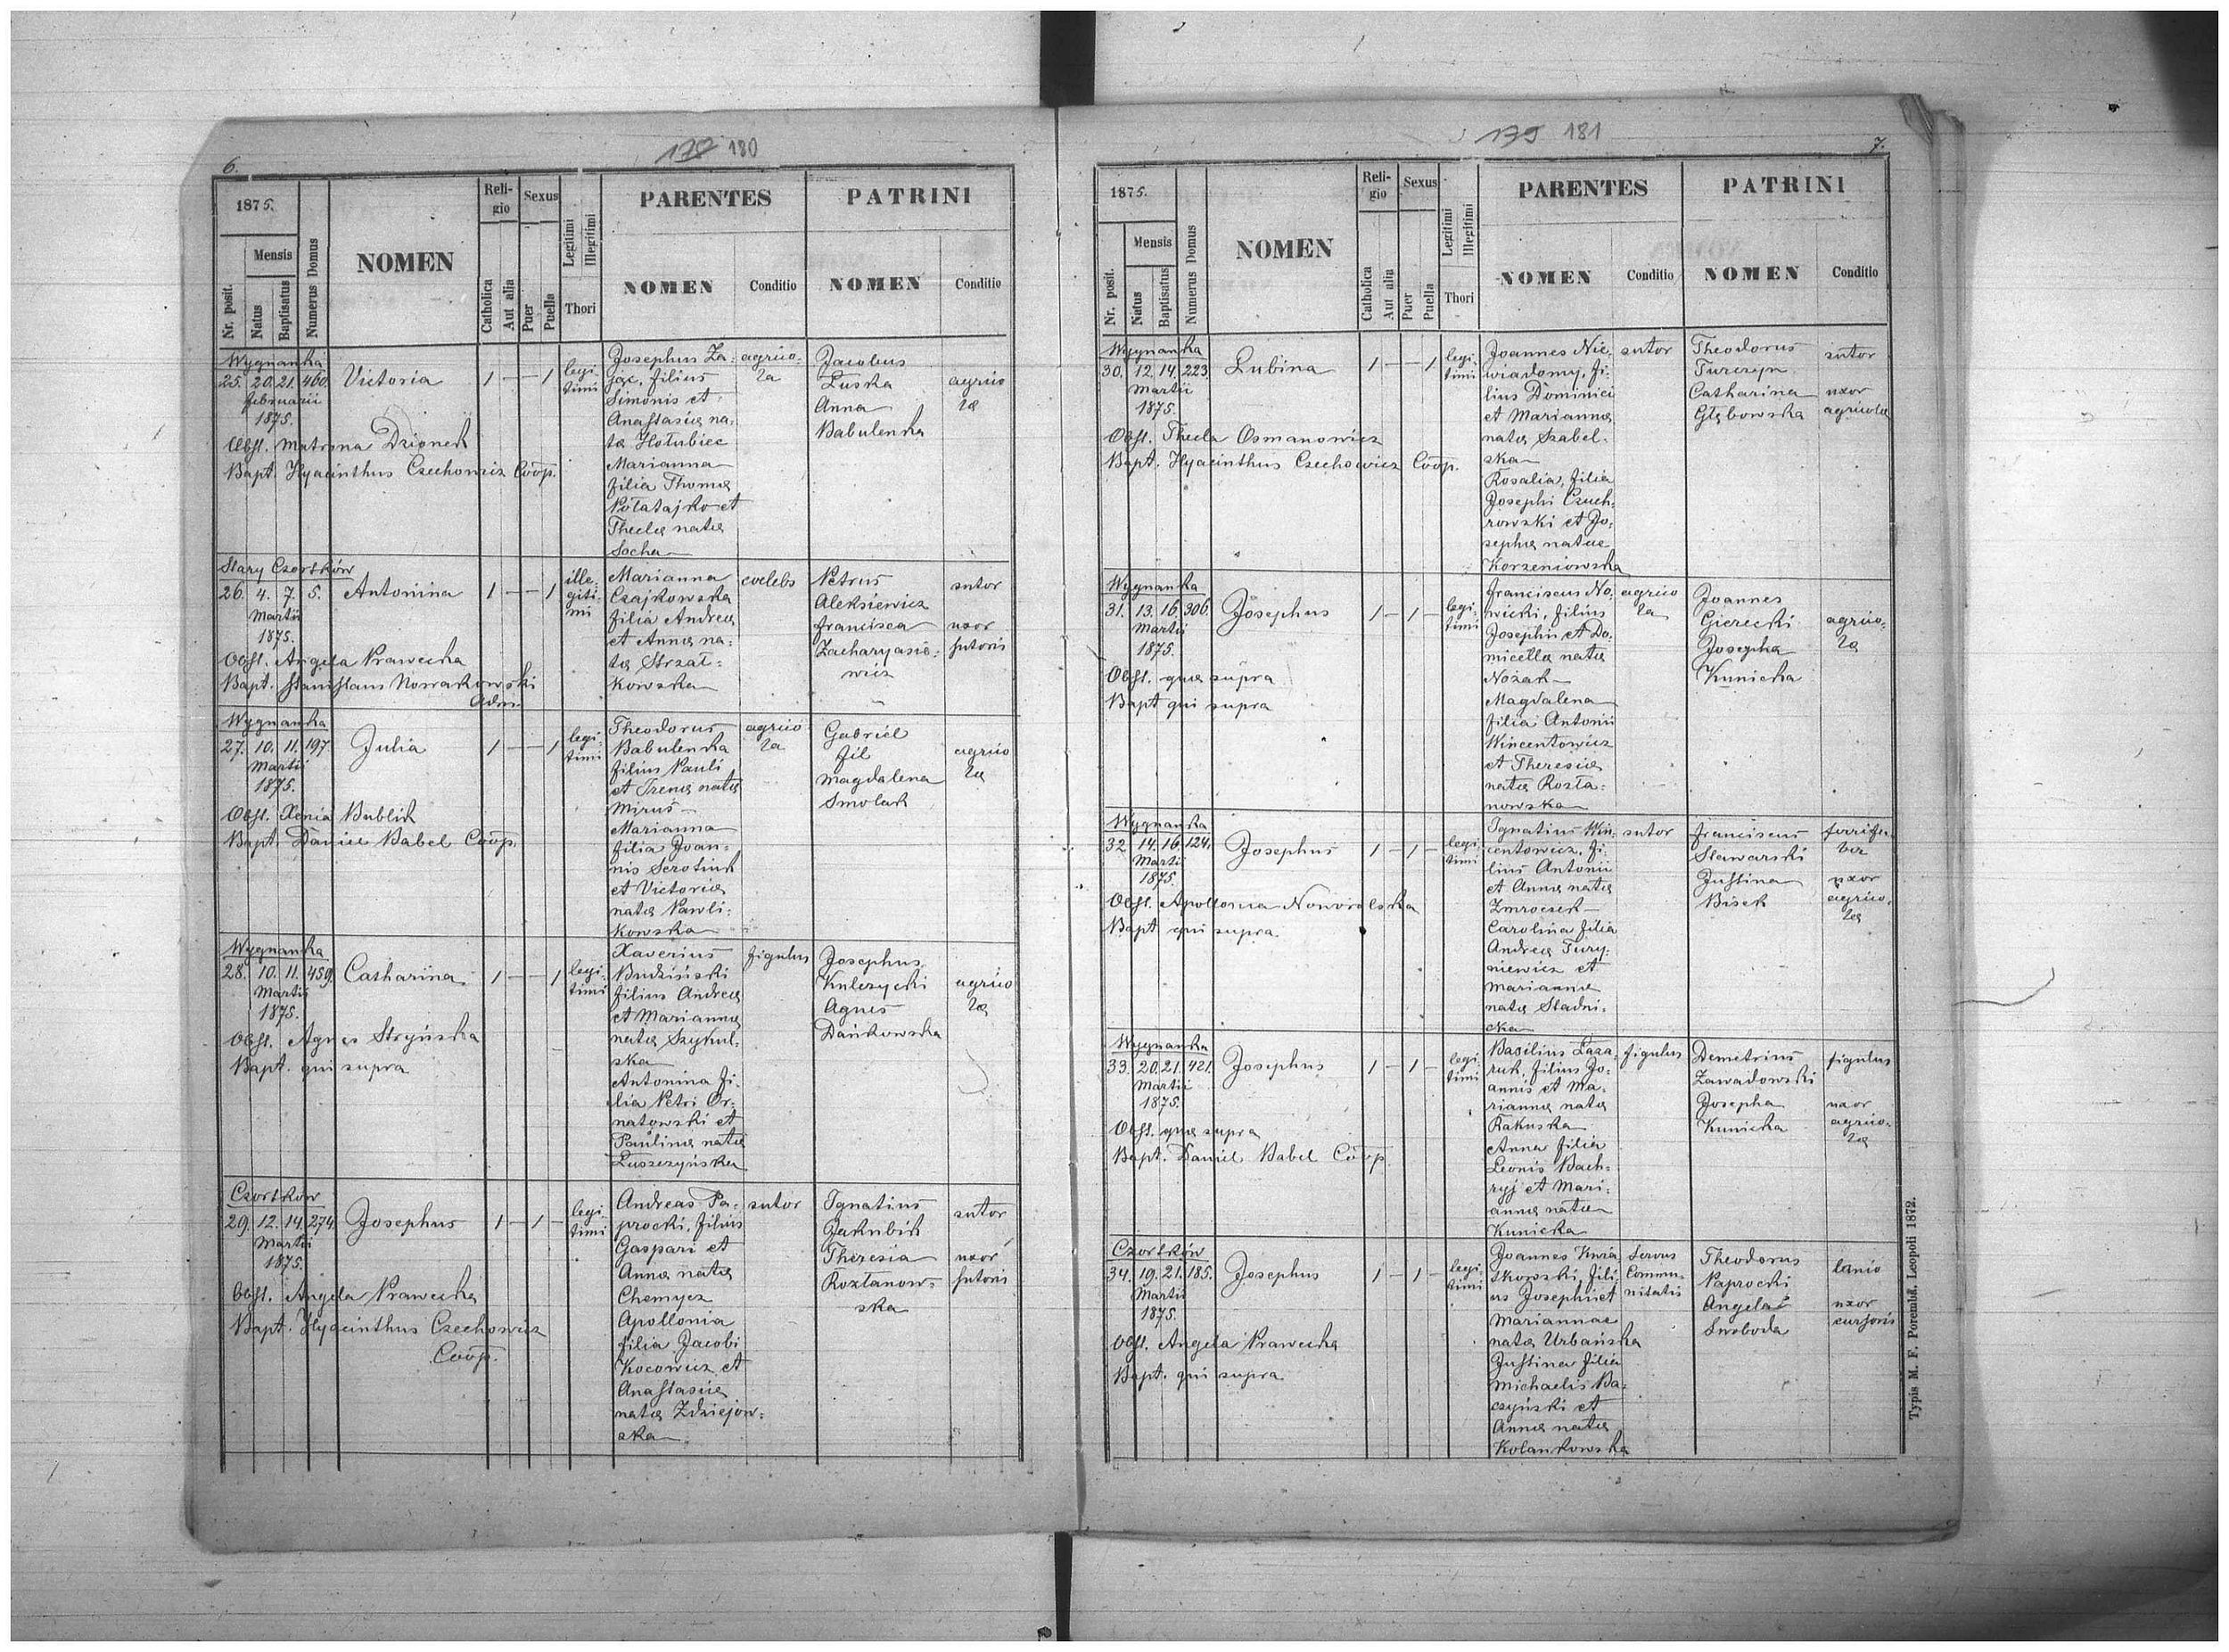 6.
178 180
1875.
Mensis
Nr. posit.
Natus
Baptisatus
Numerus Domus
NOMEN
Reli-
gio
Catholica
Aut alia
Sexus
Puer
Puella
Legitimi
Illegitimi
Thori
PARENTES
NOMEN
Conditio
PATRINI
NOMEN
Conditio
Wygnanka
25. 20. 21. 460. Victoria 1 — — 1
februarii
1875.
Obst. Matrona Dzionek
Bapt. Hyacinthus Czechowicz Coop.
legi-
timi
Josephus Za-
jąc, filius
Simonis et
Anastasiæ na-
tæ Hołubiec
Marianna
filia Thomæ
Połatajko et
Theclæ natæ
Socha
agrico-
la
Jacobus
Łuska
Anna
Babulenka
agrico
læ
Stary Czortków
26. 4. 7. 5. Antonina 1 — — 1
Martii
1875.
Obst. Angela Prawecka
Bapt. Stanislaus Nowakowski
Adm.
ille-
giti-
mi
Marianna
Czajkowska
filia Andreæ
et Annæ na-
tæ Strzał-
kowska
coelebs
Petrus
Aleksiewicz
francisca
Zacharyasie-
wicz
sutor
uxor
sutoris
Wygnanka
27. 10. 11. 197. Julia 1 — — 1
Martii
1875.
Obst. Xenia Bublik
Bapt. Daniel Babel Coop.
legi-
timi
Theodorus
Babulenka
filius Pauli
et Irenæ natæ
Miruś
Marianna
filia Joan-
nis Serotiuk
et Victoriæ
natæ Pawli-
kowska
agrico
la
Gabriel
fil
Magdalena
Smolak
agrico
læ
Wygnanka
28. 10. 11. 459. Catharina 1 — — 1
Martii
1875.
Obst. Agnes Stryńska
Bapt. qui supra
legi-
timi
Xaverius
Budziński
filius Andreæ
et Mariannæ
natæ Szykul-
ska
Antonina fi-
lia Petri Or-
natowski et
Paulinæ natæ
Łuszczyńska
figulus
Josephus
Kulczycki
Agnes
Dańkowska
agrico
læ
Czortków
29. 12. 14. 274. Josephus 1 — 1 —
Martii
1875.
Obst. Angela Prawecka
Bapt. Hyacinthus Czechowicz
Coop.
legi-
timi
Andreas Pa-
procki, filius
Gaspari et
Annæ natæ
Chemycz
Apollonia
filia Jacobi
Kocowicz et
Anastasiæ
natæ Zdziejow-
ska
sutor
Ignatius
Jakubik
Theresia
Rozłanow-
ska
sutor
uxor
sutoris
7.
179 181
1875.
Mensis
Nr. posit.
Natus
Baptisatus
Numerus Domus
NOMEN
Reli-
gio
Catholica
Aut alia
Sexus
Puer
Puella
Legitimi
Illegitimi
Thori
PARENTES
NOMEN
Conditio
PATRINI
NOMEN
Conditio
Wygnanka
30. 12. 14. 223. Lubina 1 — — 1
Martii
1875.
Obst. Thecla Osmanowicz
Bapt. Hyacinthus Czechowicz Coop.
legi-
timi
Joannes Nie-
wiadomy, fi-
lius Dominici
et Mariannæ
natæ Szabel-
ska
Rosalia, filia
Josephi Czuch-
rowski et Jo-
sephæ natae
Korzeniowska
sutor
Theodorus
Turczyn
Catharina
Głębowska
sutor
uxor
agricolæ
Wygnanka
31. 13. 16. 306. Josephus 1 — 1 —
Martii
1875.
Obst. quæ supra
Bapt qui supra
legi-
timi
franciscus No-
wicki, filius
Josephi et Do-
micellæ natæ
Nożak
Magdalena
filia Antonii
Wincentowicz
et Theresiæ
natæ Rozła-
nowska
agrico
la
Joannes
Gierecki
Josepha
Kunicka
agrico-
læ
Wygnanka
32. 14. 16. 124. Josephus 1 — 1 —
Martii
1875.
Obst. Apollonia Noworolska
Bapt qui supra
legi-
timi
Ignatius Win-
centowicz, fi-
lius Antonii
et Annæ natæ
Zmroczek
Carolina filia
Andreæ Tury-
niewicz et
Mariannæ
natæ Stadni-
cka
sutor
franciscus
Sławarski
Justina
Bisek
ferrifa-
ber
uxor
agrico-
læ
Wygnanka
33. 20. 21. 421. Josephus 1 — 1 —
Martii
1875.
Obst. quæ supra
Bapt. Daniel Babel Coop
legi-
timi
Basilius Łaza-
ruk, filius Jo-
annis et Ma-
riannæ natæ
Rakuska
Anna filia
Leonis Bach-
ryj et Mari-
annæ natæ
Kunicka
figulus
Demetrius
Zawadowski
Josepha
Kunicka
figulus
uxor
agrico-
læ
Czortków
34. 19. 21. 185. Josephus 1 — 1 —
Martii
1875.
Obst. Angela Prawecka
Bapt. qui supra
legi-
timi
Joannes Kwia
tkowski, fili-
us Josephi et
Mariannae
natæ Urbańska
Justina filia
Michaelis Ba-
czyński et
Annæ natæ
Kolankowska
Servus
Commu-
nitatis
Theodorus
Paprocki
Angela
Swoboda
lanio
uxor
cursoris
Typis M. F. Poremb8. Leopoli 1872.